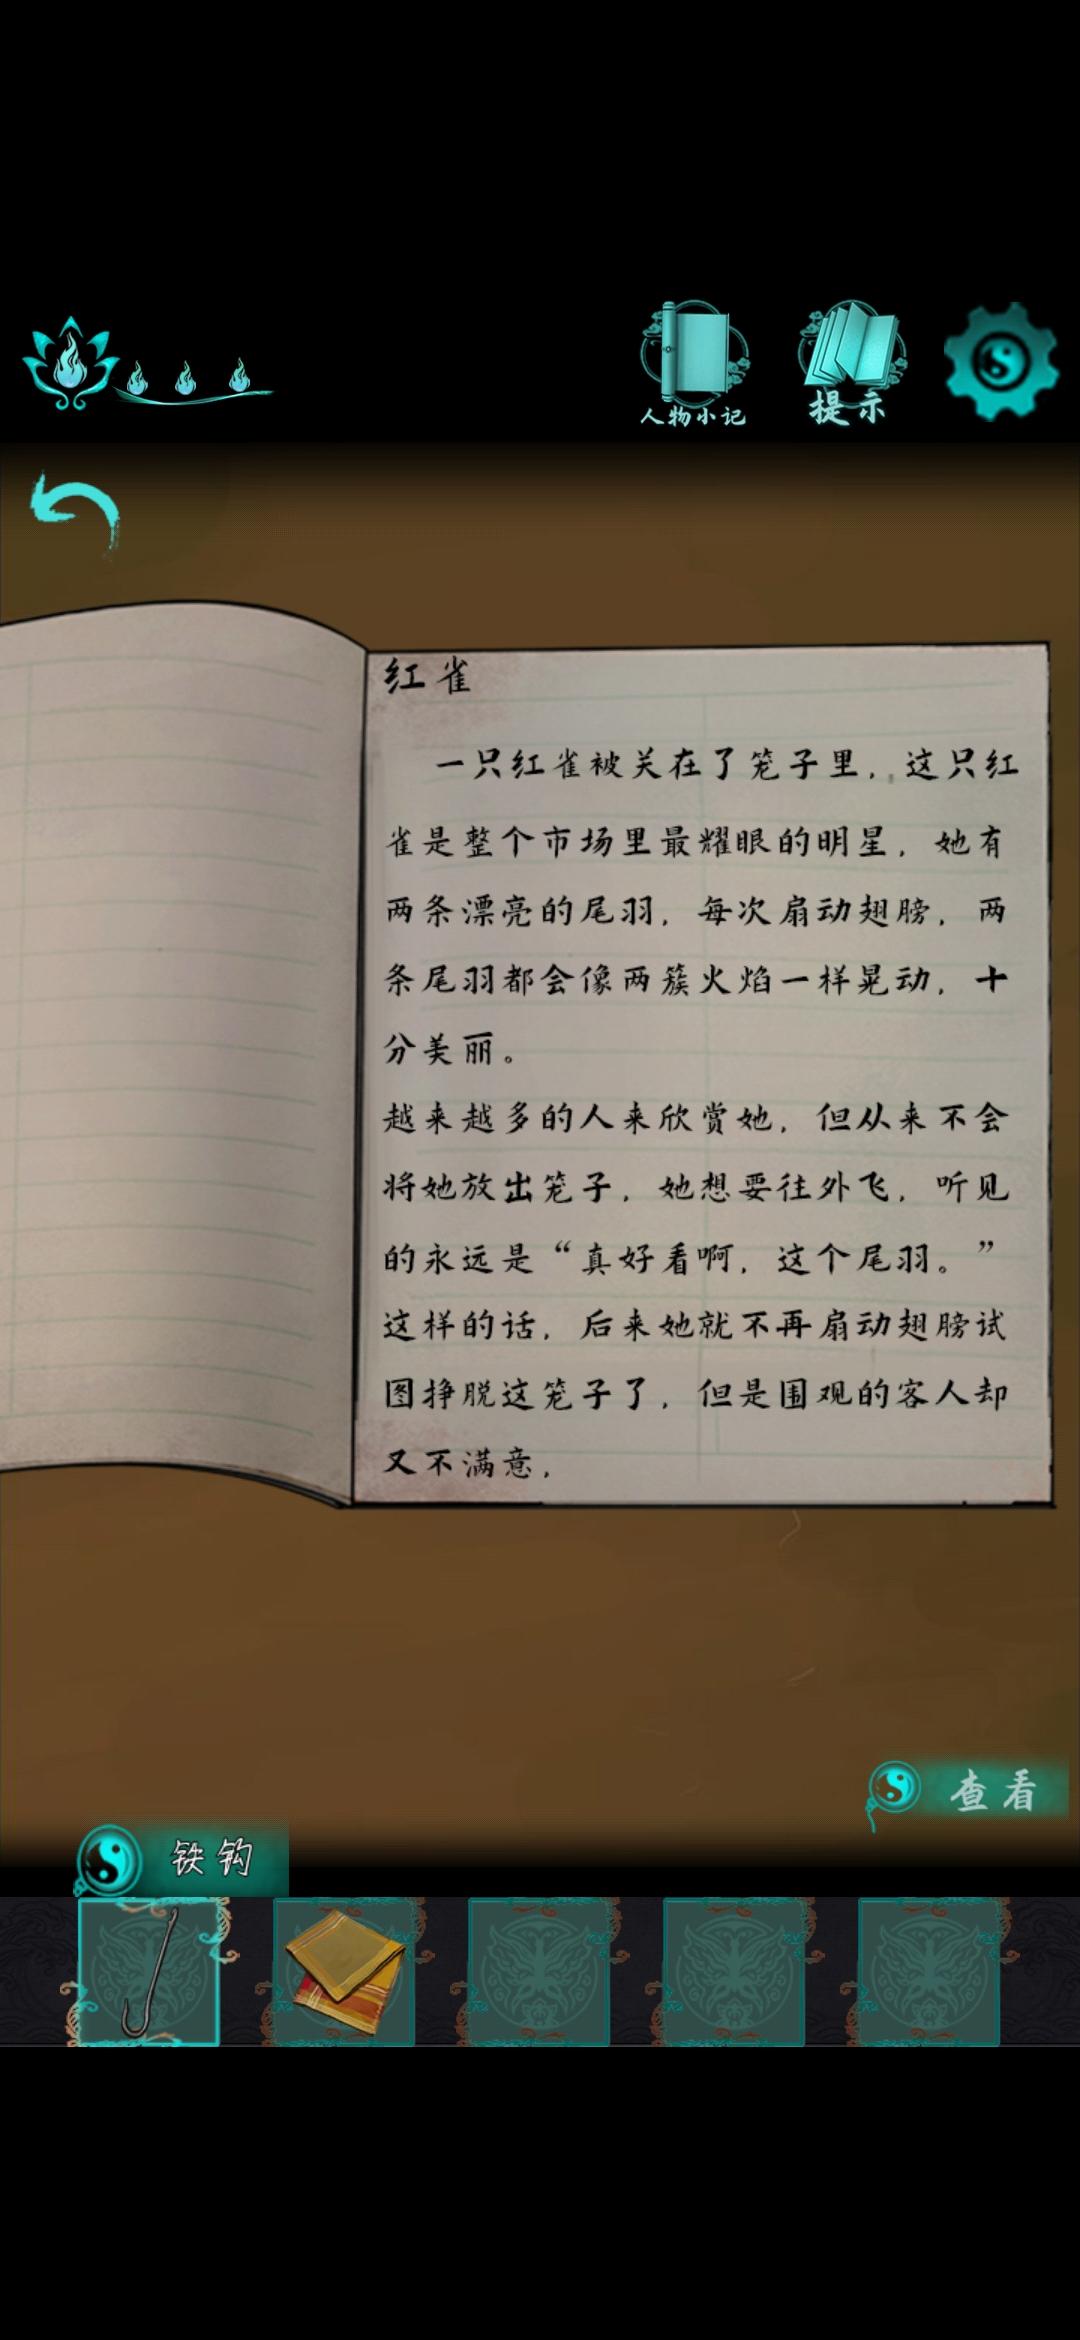 人物小记
提示
红雀
一只红雀被关在了笼子里，这只红
雀是整个市场里最耀眼的明星，她有
两条漂亮的尾羽，每次扇动翅膀，两
条尾羽都会像两簇火焰一样晃动，十
分美丽。
越来越多的人来欣赏她，但从来不会
将她放出笼子，她想要往外飞，听见
的永远是“真好看啊，这个尾羽。”
这样的话，后来她就不再扇动翅膀试
图挣脱这笼子了，但是围观的客人却
又不满意，
查看
铁钩